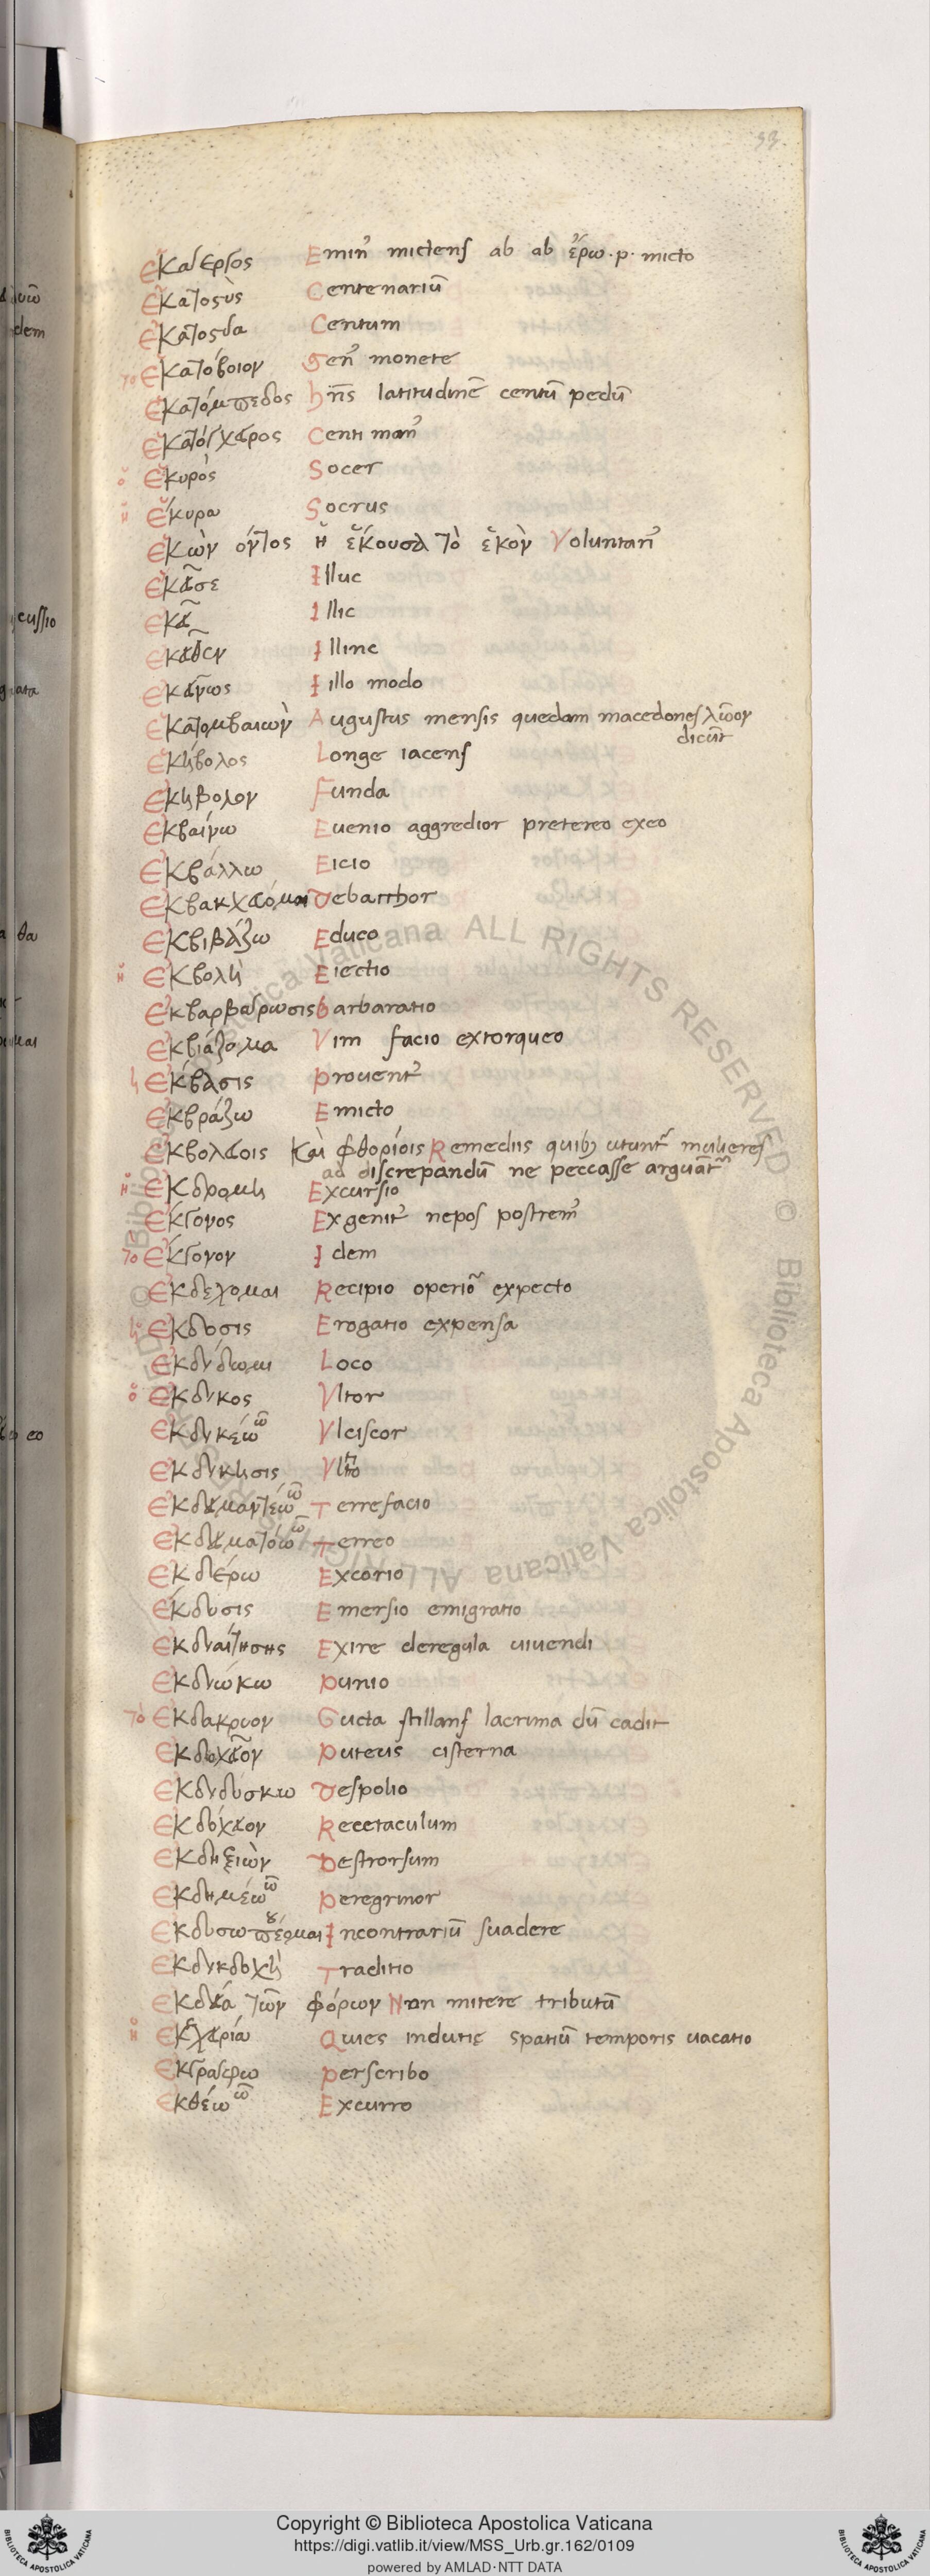 53
Ἑκάεργος Emin9 mictens ab ab ἔρω · p · micto
Ἑκατοσὺς Centenariū
Ἑκατοσδα Centum
το Ἑκατόβοιον Gen9 monete
Ἑκατόμπεδος hñs latitudinē centū pedū
Ἑκατόγχειρος Centi man9
ὁ Ἑκυρὸς Socer
ἡ Ἑκύρα Socrus
Ἑκὼν όντος ἡ ἑκούσα τὸ ἑκὸν Voluntari9
Εκεῖσε Illuc
Εκεῖ Illic
Εκεῖθεν Illinc
Εκείνως Illo modo
Εκατομβαιωὼν Augustus mensis quedam macedones λῶον
dicūt
Εκήβολος Longe iacens
Εκηβολον Funda
Εκβαίνω Euenio aggredior pretereo exeo
Εκβάλλω Eicio
Εκβακχεύομαι Debatthor
Εκβιβάζω Educo
ἡ Εκβολὴ Eiectio
Εκβαρβάρωσις barbaratio
Εκβιάζομα Vim facio extorqueo
ἡ Έκβασις prouent9
Εκβράζω Emicto
Εκβολείοις καὶ φθορίοις Remediis quibꝫ utunt᷑ mulieres
ad discrepandū ne peccasse arguāt᷑
ἡ Εκδρομη Excursio
Έκγονος Exgenit9 nepos postrem9
το Έκγονον Idem
Εκδεχομαι Recipio operio᷑ expecto
ἡ Εκδοσις Erogatio expensa
Εκδιδωμι Loco
ὁ Εκδικος Vltor
Εκδικέω ῶ Vlciscor
Εκδικησις
Εκδειμαντέω ῶ Terrefacio
Εκδειματόω ῶ Terreo
Εκδέρω Excorio
Έκδυσις Emersio emigratio
Εκδιαίτησης Exire deregula uiuendi
Εκδιώκω punio
τὸ Εκδακρυον Gucta stillans lacrima dū cadit
Εκδοχεῖον puteus cisterna
Εκδιδύσκω Despolio
Εκδόχειον Recetaculum
Εκδηξιὼν Destrorsum
Εκδημέω ῶ peregrinor
Εκδυσωπέομαι Incontrariū suadere
Εκδικδοχὴ Traditio
Εκδεια τῶν φόρων Non mitere tributū
ἡ Εκχειρία Quies indutię spatiū temporis uacatio
Εκγραφω perscribo
Εκθέω ῶ Excurro
Copyright © Biblioteca Apostolica Vaticana
https://digi.vatlib.it/view/MSS_Urb.gr.162/0109
powered by AMLAD·NTT DATA